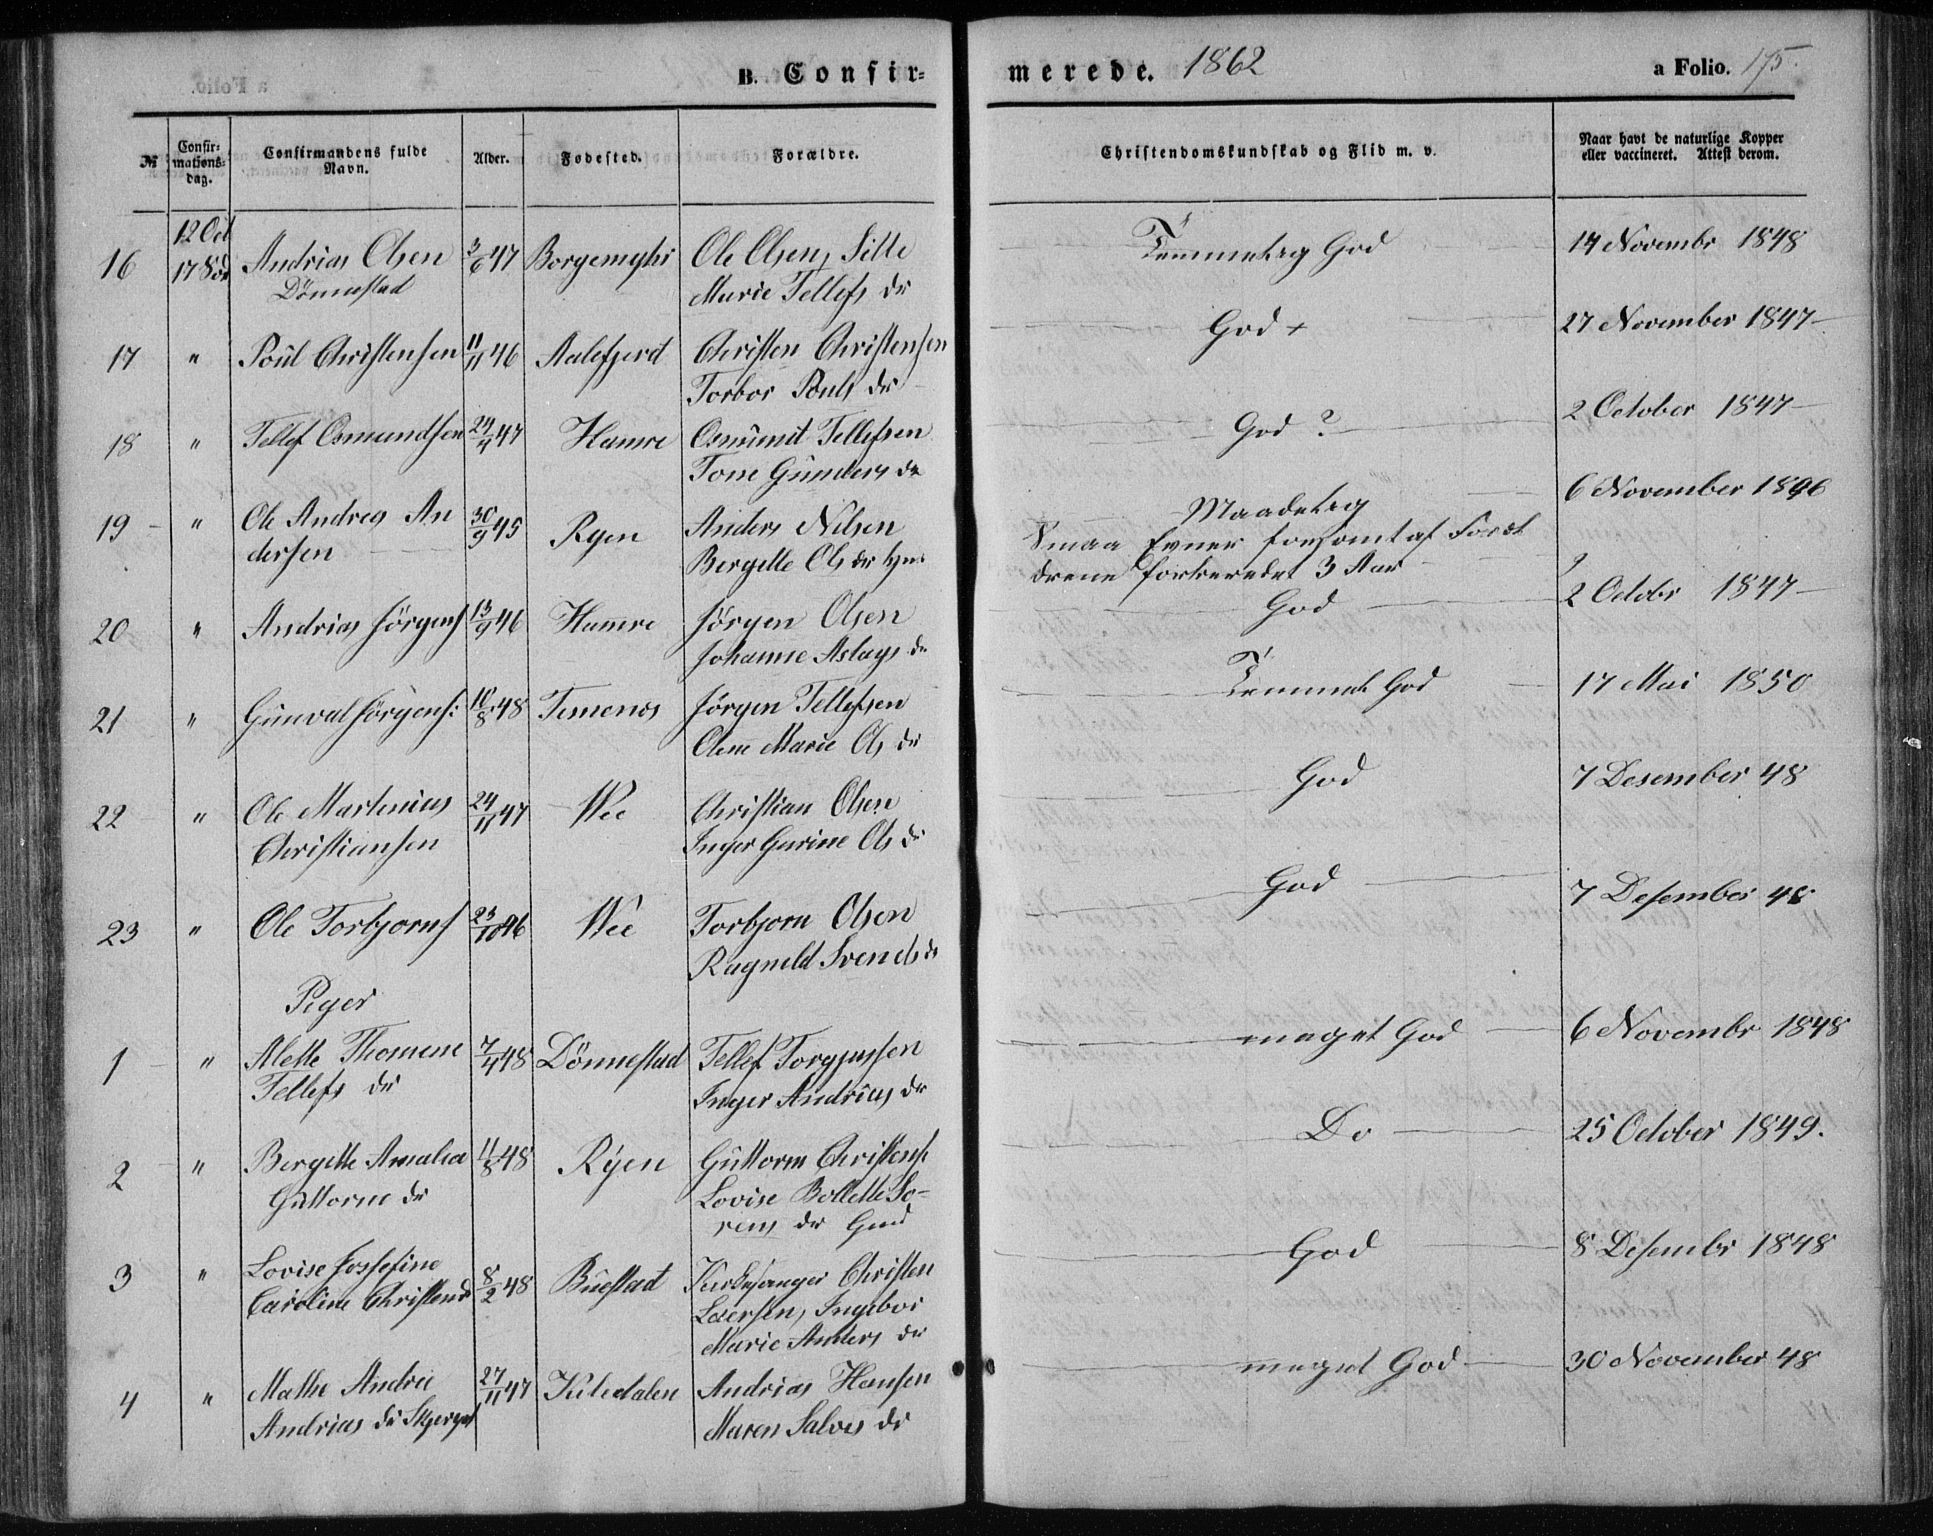 B. Confir= merede. 1862 a Folio. 175.
№ Confir=mations=dag. Confirmandens fulde Navn. Alder. Fødested. Forældre. Christendomskundskab og Flid m. v. Naar havt de naturlige Kopper eller vaccineret. Attest derom.
12 Oct
16 17 Andrias Olsen 3/6 47 Borgemyhr Ole Olsen, Sille Temmelig God 14 Novembr 1848
Dönnestad Marie Tellefs dr
17 " Poul Christensen 11/11 46 Aalefjerd Christen Christensen God + 27 November 1847
Torbor Pouls dr
18 " Tellef Osmundsen 24/4 47 Hamre Osmund Tellefsen God ? 2 October 1847
Tone Gunders dr
19 " Ole Andreas An 30/9 45 Ryen Anders Nilsen Maadelig 6 November 1846
dersen Bergette Ols dr Smaa Evner forsømt af Foræl
drene 3 Aar
20 " Andrias Jörgens 13/9 46 Hamre Jörgen Olsen God 2 Octobr 1847
Johanne Aslags dr
21 " Gunval Jörgens: 10/8 48 Temenes Jörgen Tellefsen Temmel God 17 Mai 1850
Olene Marie Ols dr
22 " Ole Martinius 24/11 47 Wee Christian Olsen God 7 Desember 48
Christiansen Inger Gurine Ols dr
23 " Ole Torbjorns 23/10 46 Wee Torbjorn Olsen God 7 Desember 48
Ragnild Svends dr
Piger
1 " Alette Thomine 7/4 48 Dönnestad Tellef Torgjussen meget God 6 Novembr 1848
Tellefs dr Inger Andrias dr
2 " Bergette Amalia 11/8 48 Ryen Guttorm Christens Do 25 October 1849.
Guttorms dr Lovise Bollette So-
rens dr
3 " Lovise Josefine 8/2 48 Buestad Kirkesanger Christen God 8 Desembr 1848
Caroline Christensd Laersen, Ingebor
Marie Anders dr
4 " Mathe Andrie 27/11 47 Kiledalen Andrias Hansen meget God 30 November 48
Andrias dr Maren Salves dr